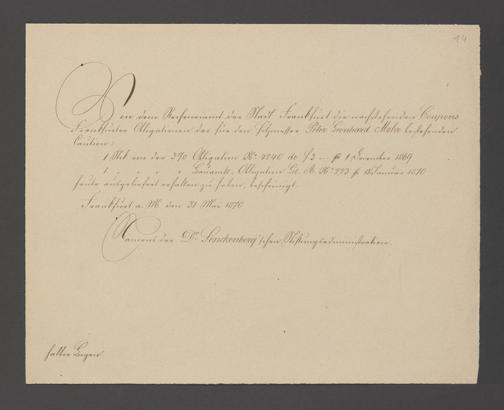 14
Von dem Rechneiamt der Stadt Frankfurt die nachstehenden Coupons
Frankfurter Obligationen der für den Hilfmesser Peter Leonhard Maler bestehenden
Caution:
1 Stck von der 3% Obligation No. 4840 de f 3 ... p 1 December 1869
1 " " " " Obligation Lit. A. No. 223 p 1 Januar 1870
heute ausgeliefert erhalten zu haben, bescheinigt.
Frankfurt a. M. den 31 Mai 1870
Namens der Dr. Senckenberg'schen Stiftungsadministration.
halber Bogen